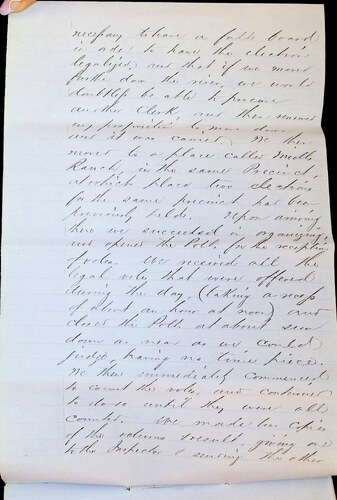 necessary to have a full board
in order to have the election
legalized; and that if we moved
further down the river, we would
doubtless be able to procure
another Clerk, and then renewed
my proposition to move down
and it was carried. We then
moved to a place called
Ranch, in the same Precinct,
at which place two elections
for the same precinct has been
previously held. Upon arriving
here we succeeded in organizing,
and opened the Poll for the reception
of votes. We received all the
legal votes that were offered
during the day, (taking a recess
of about an hour at noon) and
closed the Poll at about sun
down as near as we could
judge, having no time piece.
We then immediately commenced
to count the votes, and continued
to do so until they were all
counted. We made two copies
of the returns & result, giving one
to the Inspector & sending the other